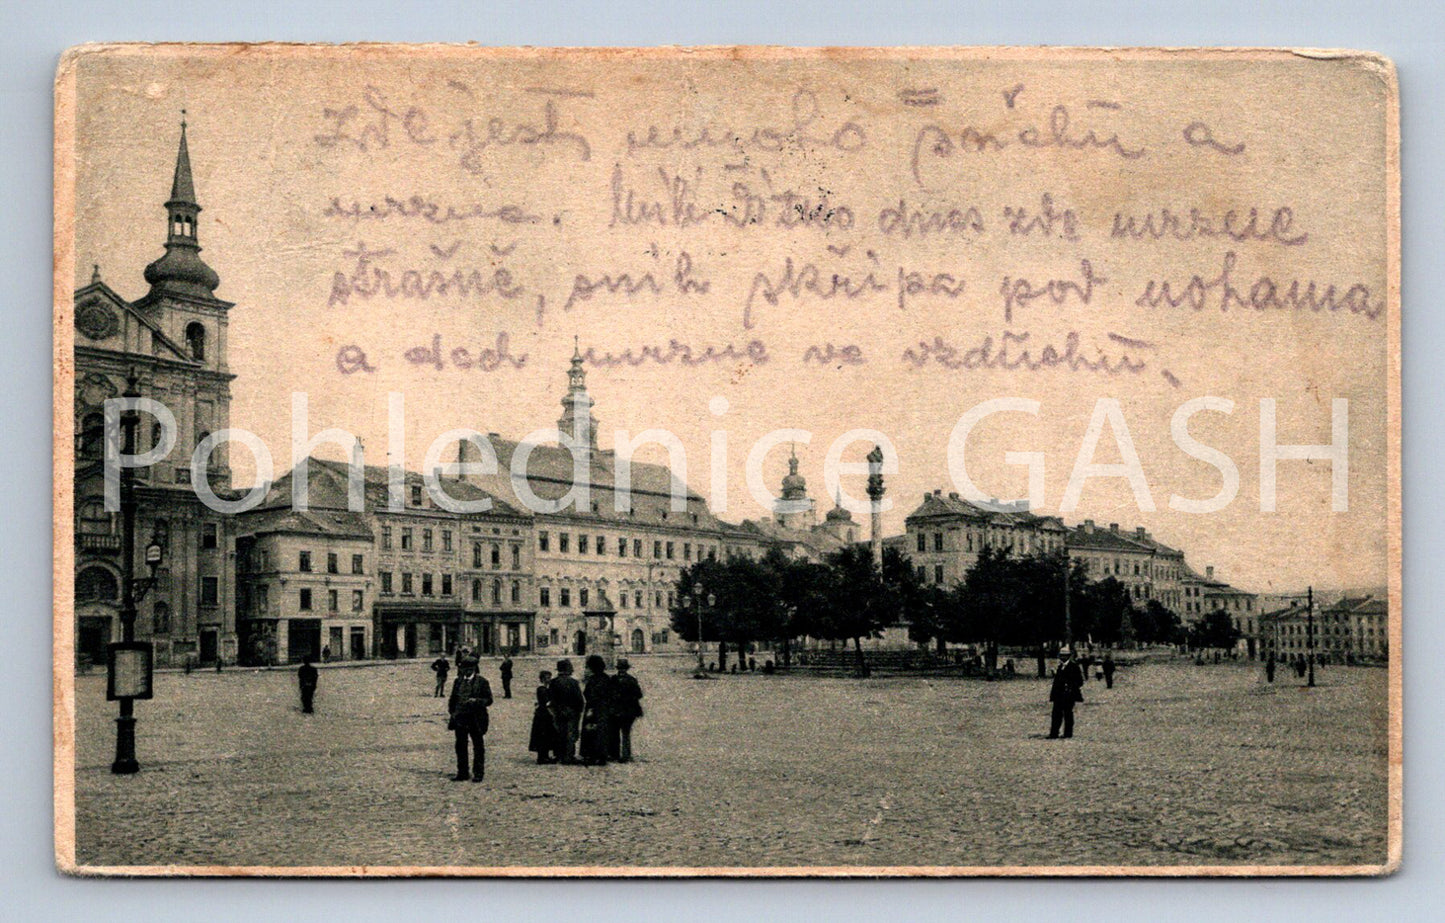 zde jest mnoho sněhu a
mrzne. dnes zde mrzne
strašně, snih skřipa pod nohama
a dech mrzne ve vzduchu.
Pohlednice GASH